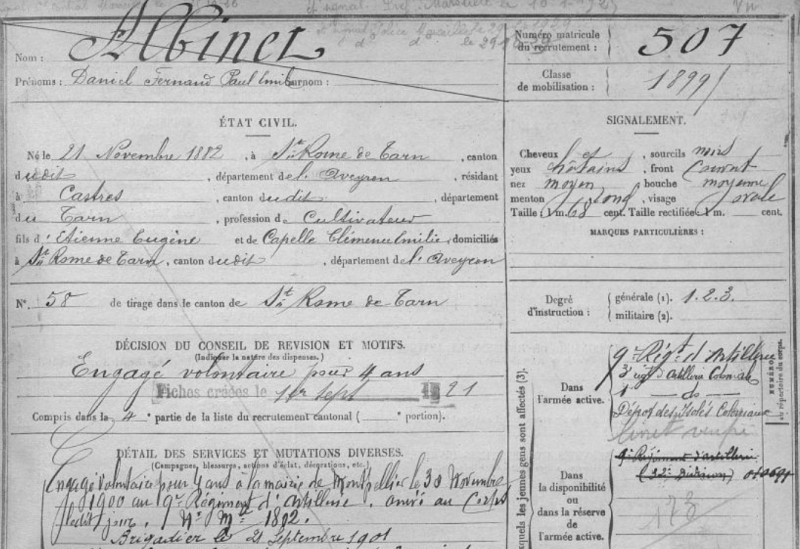 Albinet
Nom :
Prénoms : Daniel Fernand Paul Emile Surnom :
Numéro matricule
du recrutement : 507
Classe
de mobilisation : 1899
ÉTAT CIVIL.
Né le 21 Novembre 1882, à St Rome de Tarn, canton
dudit, département de l'Aveyron, résidant
à Castres, canton dudit, département
du Tarn, profession de Cultivateur
fils d'Etienne Eugène et de Capelle Clémence Emilie, domiciliés
à St Rome de Tarn, canton dudit, département de l'Aveyron
N° 58 de tirage dans le canton de St Rome de Tarn
SIGNALEMENT.
Cheveux et, sourcils noirs
yeux châtains, front couvert
nez moyen, bouche moyenne
menton rond, visage ovale
Taille : 1 m. 68 cent. Taille rectifiée : 1 m. cent.
MARQUES PARTICULIÈRES :
Degré
d'instruction :
générale (1). 1.2.3.
militaire (2).
DÉCISION DU CONSEIL DE REVISION ET MOTIFS.
(Indiquer la nature des dispenses.)
Engagé volontaire pour 4 ans
Fiches créées le 1er sept 1921
Compris dans la 4e partie de la liste du recrutement cantonal ( portion).
DÉTAIL DES SERVICES ET MUTATIONS DIVERSES.
(Campagnes, blessures, actions d'éclat, décorations, etc.)
Engagé volontaire pour 4 ans à la mairie de Montpellier le 30 Novembre
1900 au 9e Régiment d'Artillerie. arrivé au Corps
ledit jour. No Mle 1802.
Brigadier le 21 Septembre 1901
quels les jeunes gens sont affectés (3).
NUMÉRO
au répertoire du corps.
Dans
l'armée active.
9e Régt d'Artillerie
3e régt d'Artillerie Coloniale
Dépôt des Isolés Coloniaux
Dans
la disponibilité
ou
dans la réserve
de
l'armée active.
9e Régiment d'artillerie
173